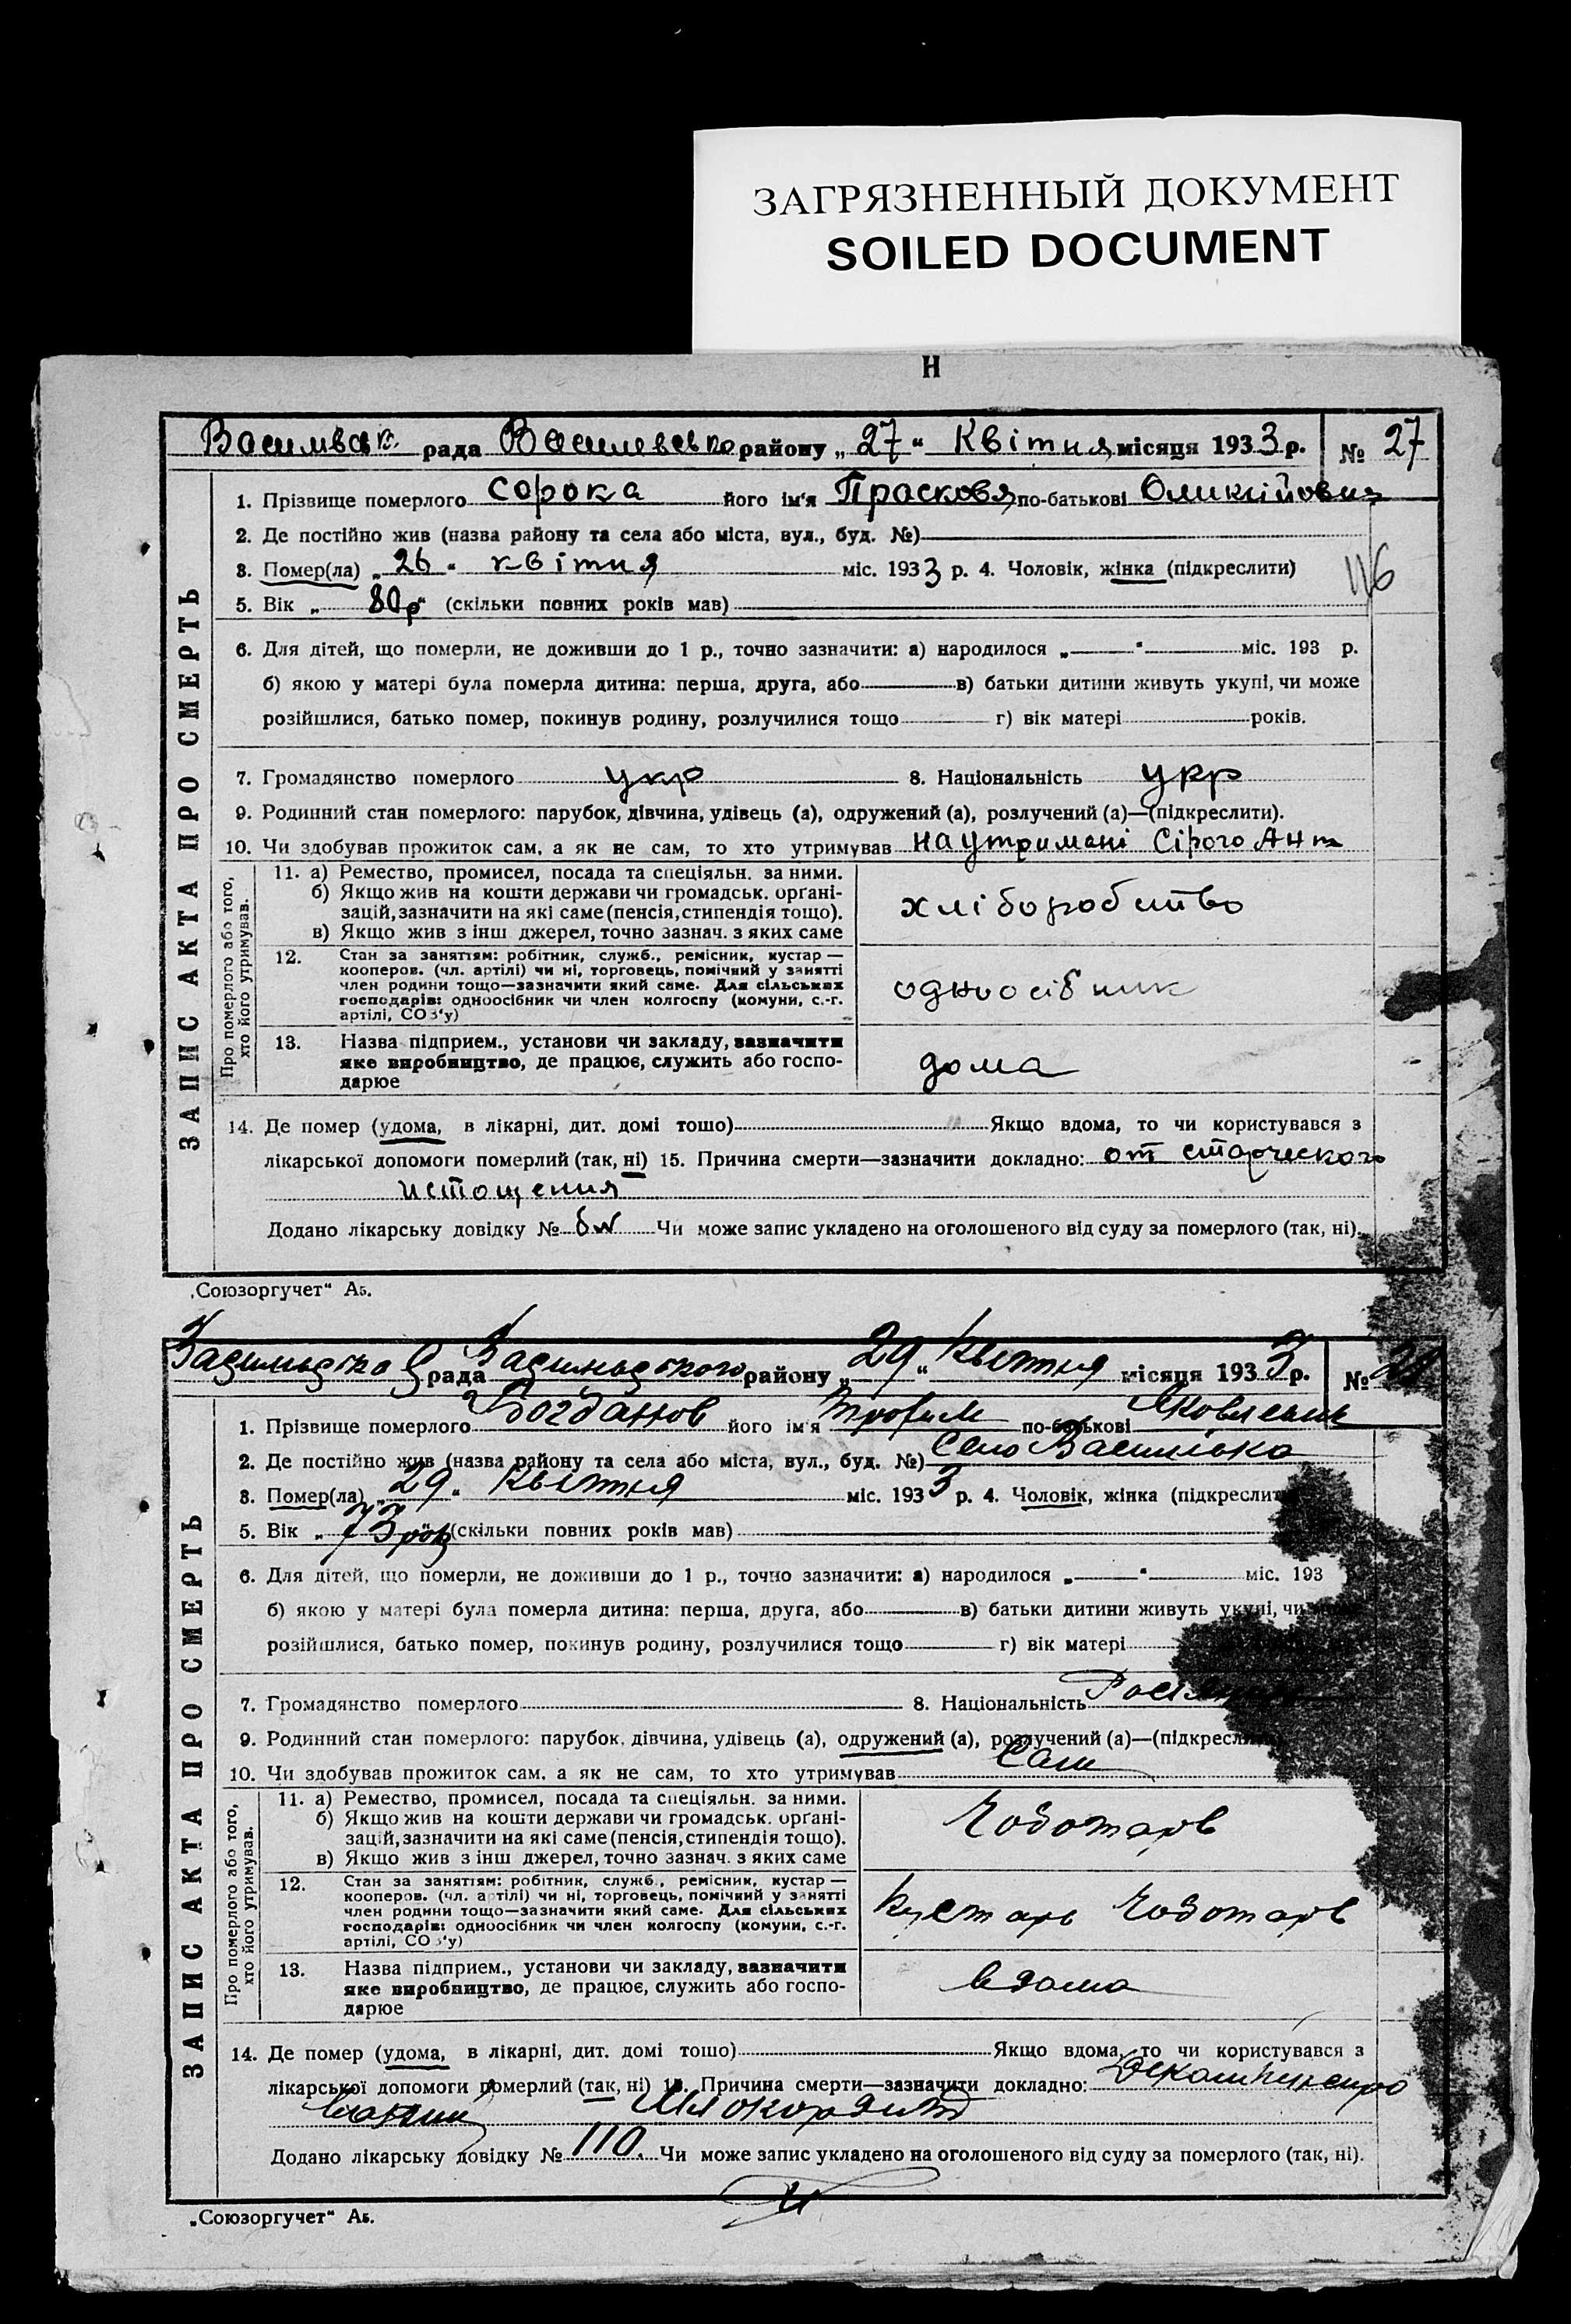 ЗАГРЯЗНЕННЫЙ ДОКУМЕНТ
SOILED DOCUMENT
Н
рада Василевсько району „27“ Квітня місяця 1933 р. № 27
ЗАПИС АКТА ПРО СМЕРТЬ
1. Прізвище померлого Сорока його ім'я Прасковя по-батькові
2. Де постійно жив (назва району та села або міста, вул., буд. №)
3. Помер(ла) „26“ квітня міс. 1933 р. 4. Чоловік, жінка (підкреслити)
116
5. Вік „80р“ (скільки повних років мав)
6. Для дітей, що померли, не доживши до 1 р., точно зазначити: а) народилося „—“— міс. 193 р.
б) якою у матері була померла дитина: перша, друга, або — в) батьки дитини живуть укупі, чи може
розійшлися, батько помер, покинув родину, розлучилися тощо — г) вік матері років.
7. Громадянство померлого укр 8. Національність укр
9. Родинний стан померлого: парубок, дівчина, удівець (а), одружений (а), розлучений (а)—(підкреслити).
10. Чи здобував прожиток сам, а як не сам, то хто утримував на утримані Сірого Ант
Про померлого або того, хто його утримував.
11. а) Ремество, промисел, посада та спеціяльн. за ними.
б) Якщо жив на кошти держави чи громадськ. орґані-
зацій, зазначити на які саме (пенсія, стипендія тощо).
в) Якщо жив з інш джерел, точно зазнач. з яких саме
хліборобство
12. Стан за заняттям: робітник, служб., ремісник, кустар —
кооперов. (чл. артілі) чи ні, торговець, помічний у занятті
член родини тощо—зазначити який саме. Для сільських
господарів: одноосібник чи член колгоспу (комуни, с.-г.
артілі, СОЗ'у)
одноосібник
13. Назва підприєм., установи чи закладу, зазначити
яке виробництво, де працює, служить або госпо-
дарює
дома
14. Де помер (удома, в лікарні, дит. домі тощо) Якщо вдома, то чи користувався з
лікарської допомоги померлий (так, ні) 15. Причина смерти—зазначити докладно: от старческого
истощения
Додано лікарську довідку № Чи може запис укладено на оголошеного від суду за померлого (так, ні).
„Союзоргучет“ А5.
рада району „29“ Квітня місяця 1933 р. №
ЗАПИС АКТА ПРО СМЕРТЬ
1. Прізвище померлого Богданов його ім'я Трофим по-батькові
2. Де постійно жив (назва району та села або міста, вул., буд. №) Село Василівка
3. Помер(ла) „29“ Квітня міс. 1933 р. 4. Чоловік, жінка
5. Вік „73 рок“ (скільки повних років мав)
6. Для дітей, що померли, не доживши до 1 р., точно зазначити: а) народилося „—“— міс. 193
б) якою у матері була померла дитина: перша, друга, або — в) батьки дитини живуть укупі, чи
розійшлися, батько помер, покинув родину, розлучилися тощо — г) вік матері
7. Громадянство померлого 8. Національність
9. Родинний стан померлого: парубок, дівчина, удівець (а), одружений (а), розлучений (а)—
10. Чи здобував прожиток сам, а як не сам, то хто утримував Сам
Про померлого або того, хто його утримував.
11. а) Ремество, промисел, посада та спеціяльн. за ними.
б) Якщо жив на кошти держави чи громадськ. орґані-
зацій, зазначити на які саме (пенсія, стипендія тощо).
в) Якщо жив з інш джерел, точно зазнач. з яких саме
Чоботарь
12. Стан за заняттям: робітник, служб., ремісник, кустар —
кооперов. (чл. артілі) чи ні, торговець, помічний у занятті
член родини тощо—зазначити який саме. Для сільських
господарів: одноосібник чи член колгоспу (комуни, с.-г.
артілі, СОЗ'у)
Кустарь Чоботарь
13. Назва підприєм., установи чи закладу, зазначити
яке виробництво, де працює, служить або госпо-
дарює
вдома
14. Де помер (удома, в лікарні, дит. домі тощо) Якщо вдома, то чи користувався з
лікарської допомоги померлий (так, ні) 15. Причина смерти—зазначити докладно:
Додано лікарську довідку № 110. Чи може запис укладено на оголошеного від суду за померлого (так, ні).
„Союзоргучет“ А5.